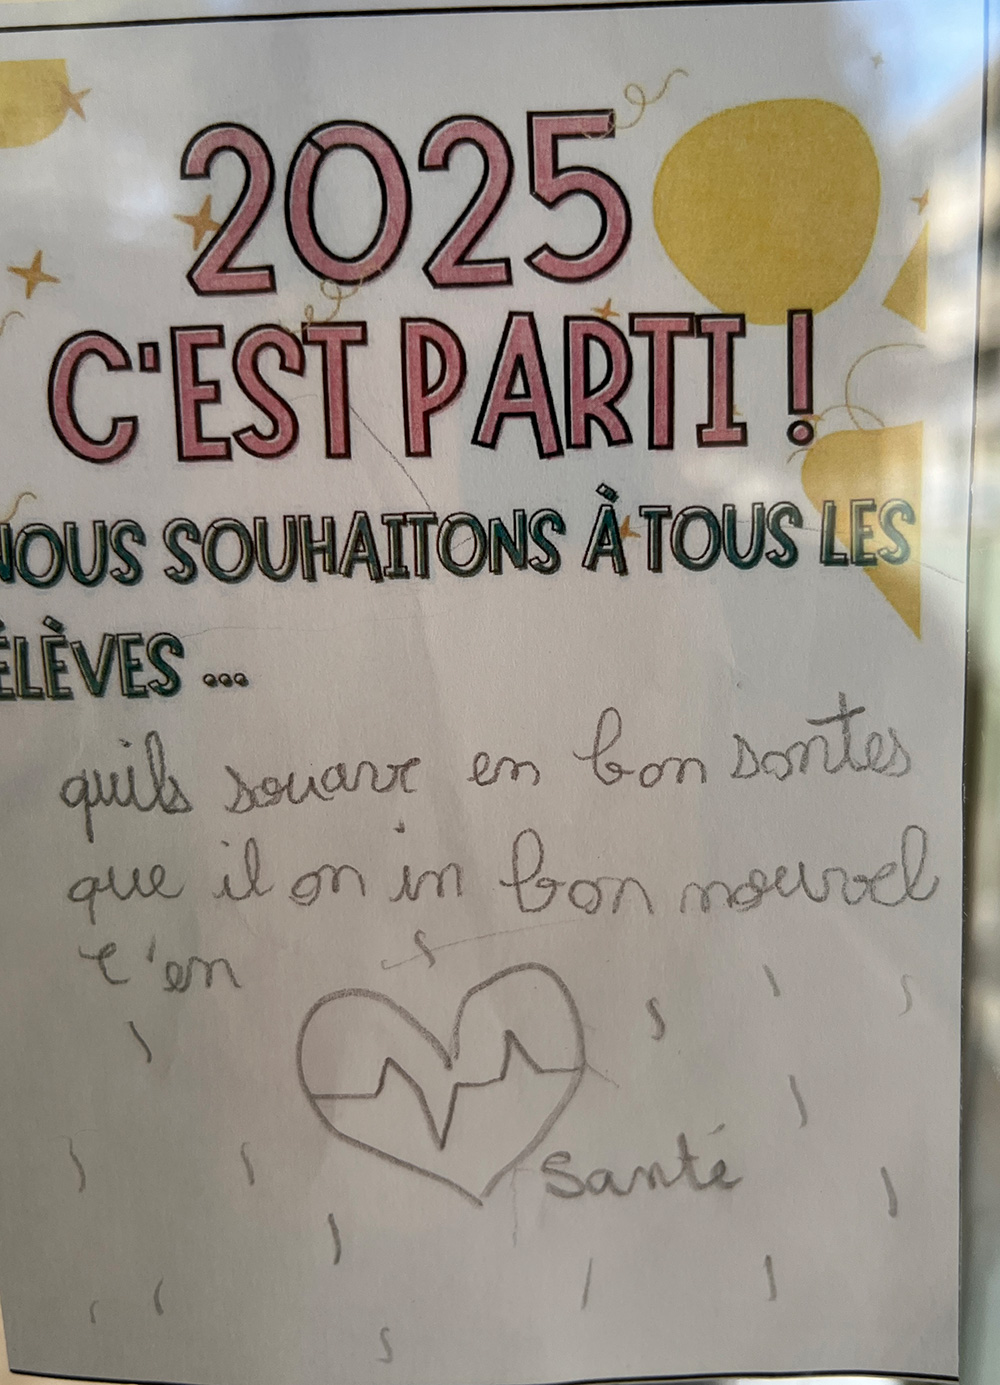 2025
C'EST PARTI !
NOUS SOUHAITONS À TOUS LES
ÉLÈVES ...
quils souave en bon sontes
que il on in bon nouvel
t'en
santé